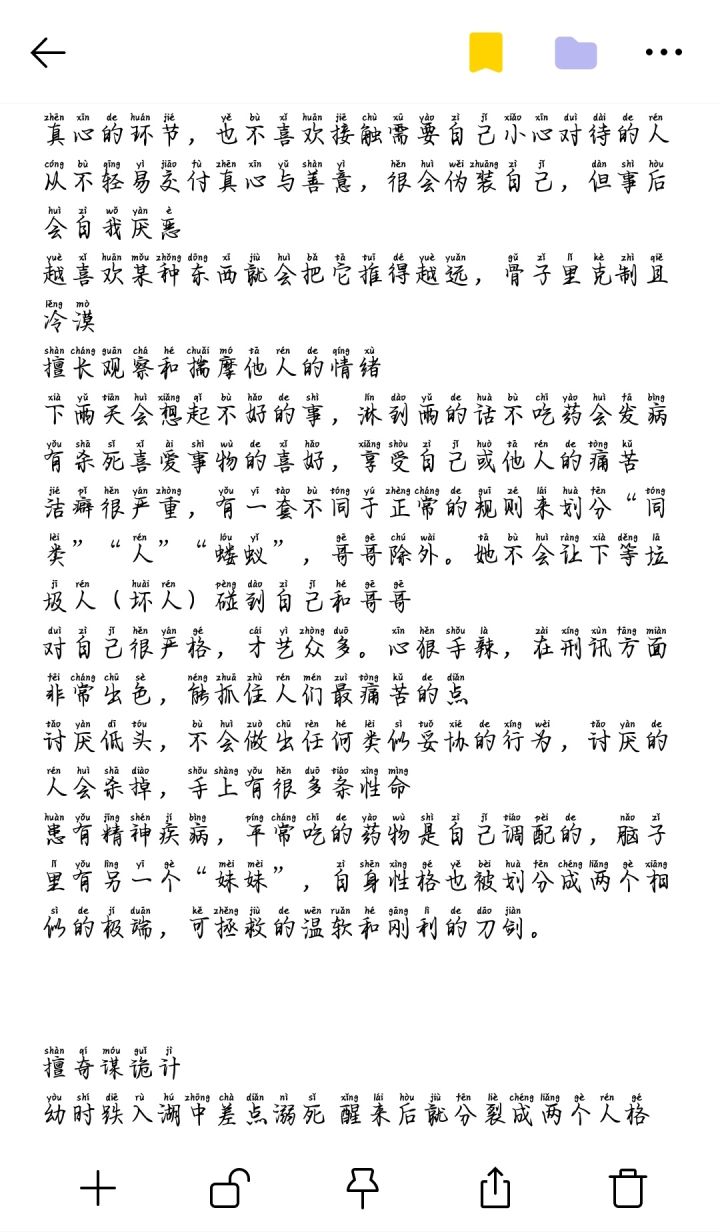 真心的环节，也不喜欢接触需要自己小心对待的人
从不轻易交付真心与善意，很会伪装自己，但事后
会自我厌恶
越喜欢某种东西就会把它推得越远，骨子里克制且
冷漠
擅长观察和揣摩他人的情绪
下雨天会想起不好的事，淋到雨的话不吃药会发病
有杀死喜爱事物的喜好，享受自己或他人的痛苦
洁癖很严重，有一套不同于正常的规则来划分“同
类”“人”“蝼蚁”，哥哥除外。她不会让下等垃
圾人（坏人）碰到自己和哥哥
对自己很严格，才艺众多。心狠手辣，在刑讯方面
非常出色，能抓住人们最痛苦的点
讨厌低头，不会做出任何类似妥协的行为，讨厌的
人会杀掉，手上有很多条性命
患有精神疾病，平常吃的药物是自己调配的，脑子
里有另一个“妹妹”，自身性格也被划分成两个相
似的极端，可拯救的温软和刚利的刀剑。
擅奇谋诡计
幼时跌入湖中差点溺死 醒来后就分裂成两个人格